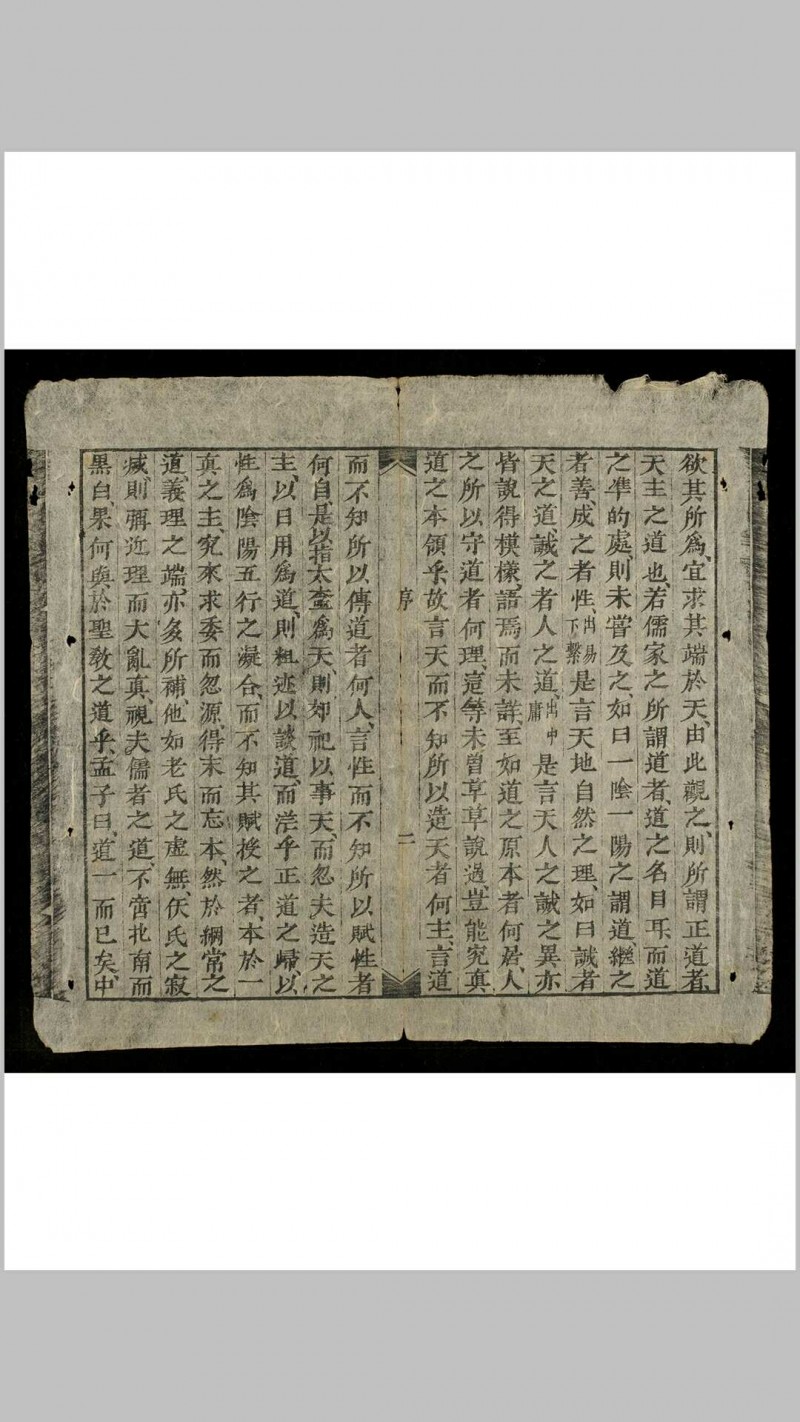 欲其所爲、宜求其端於天、由此觀之、則所謂正道者、
天主之道也、若儒家之所謂道者、道之名目耳、而道
之凖的處、則未甞及之、如曰一隂一陽之謂道、繼之
者善、成之者性、出易下繫是言天地自然之理、如曰誠者
天之道、誠之者人之道、出中庸是言天人之誠之異、亦
皆說得模樣、語焉而未詳、至如道之原本者何居、人
之所以守道者何理、這等未曾草草說過、豈能究真
道之本領乎、故言天而不知所以造天者何主、言道
序
二
而不知所以傳道者何人、言性而不知所以賦性者
何自、是以指太䖏爲天、則郊祀以事天、而忽夫造天之
主、以日用爲道、則粗迹以談道、而茫乎正道之歸、以
性爲隂陽五行之凝合、而不知其賦授之者、本於一
真之主、究來求委而忽源、得末而忘本、然於綱常之
道、義理之端、亦多所補、他如老氏之虛無、佛氏之寂
滅、則彌近理而大亂真、視夫儒者之道、不啻北南而
黑白、果何與於聖教之道乎、孟子曰、道一而已矣、中